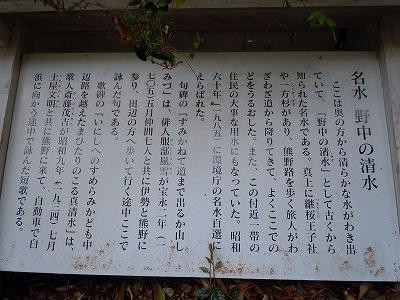 名水 野中の清水
ここは奥の方から清らかな水がわき出
ていて、「野中の清水」として古くから
知られた名水である。真上に継桜王子社
や一方杉があり、熊野路を歩く旅人がわ
ざわざ道から降りてきて、よくここでの
どをうるおした。また、この付近一帯の
住民の大事な用水にもなっていた。昭和
六十年（一九八五）に環境庁の名水百選に
えらばれた。
句碑の「すみかねて道まで出るか山し
みづ」は、俳人服部嵐雪が宝永二年（一
七〇五）五月仲間七人と共に伊勢と熊野に
参り、田辺の方へ歩いて行く途中ここで
詠んだ句である。
歌碑の「いにしへのすめらみかども中
辺路を越えたまひたりのこる真清水」は、
歌人斎藤茂吉が昭和九年（一九三四）七月
土屋文明と共に熊野に来て、自動車で白
浜に向かう途中で詠んだ短歌である。